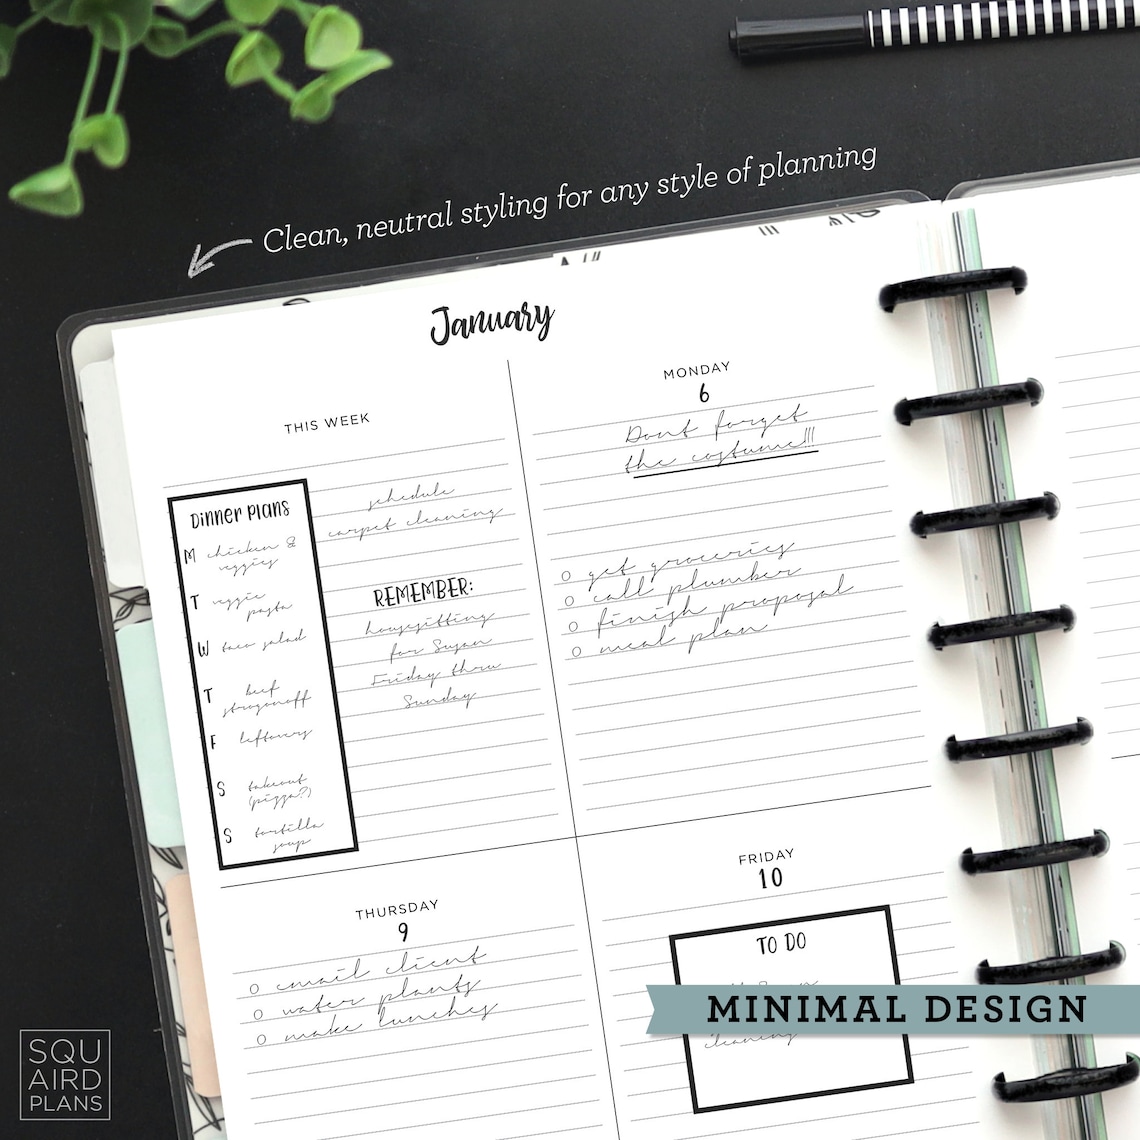 Clean, neutral styling for any style of planning
January
THIS WEEK
Dinner Plans
M chicken &
veggies
T veggie
pasta
W taco salad
T beef
stroganoff
F leftovers
S takeout
(pizza?)
S tortilla
soup
schedule
carpet cleaning
REMEMBER:
housesitting
for Susan
Friday thru
Sunday
MONDAY
6
Dont forget
the costume!!!
get groceries
call plumber
finish proposal
meal plan
THURSDAY
9
email client
water plants
make lunches
FRIDAY
10
TO DO
cleaning
MINIMAL DESIGN
SQU
AIRD
PLANS